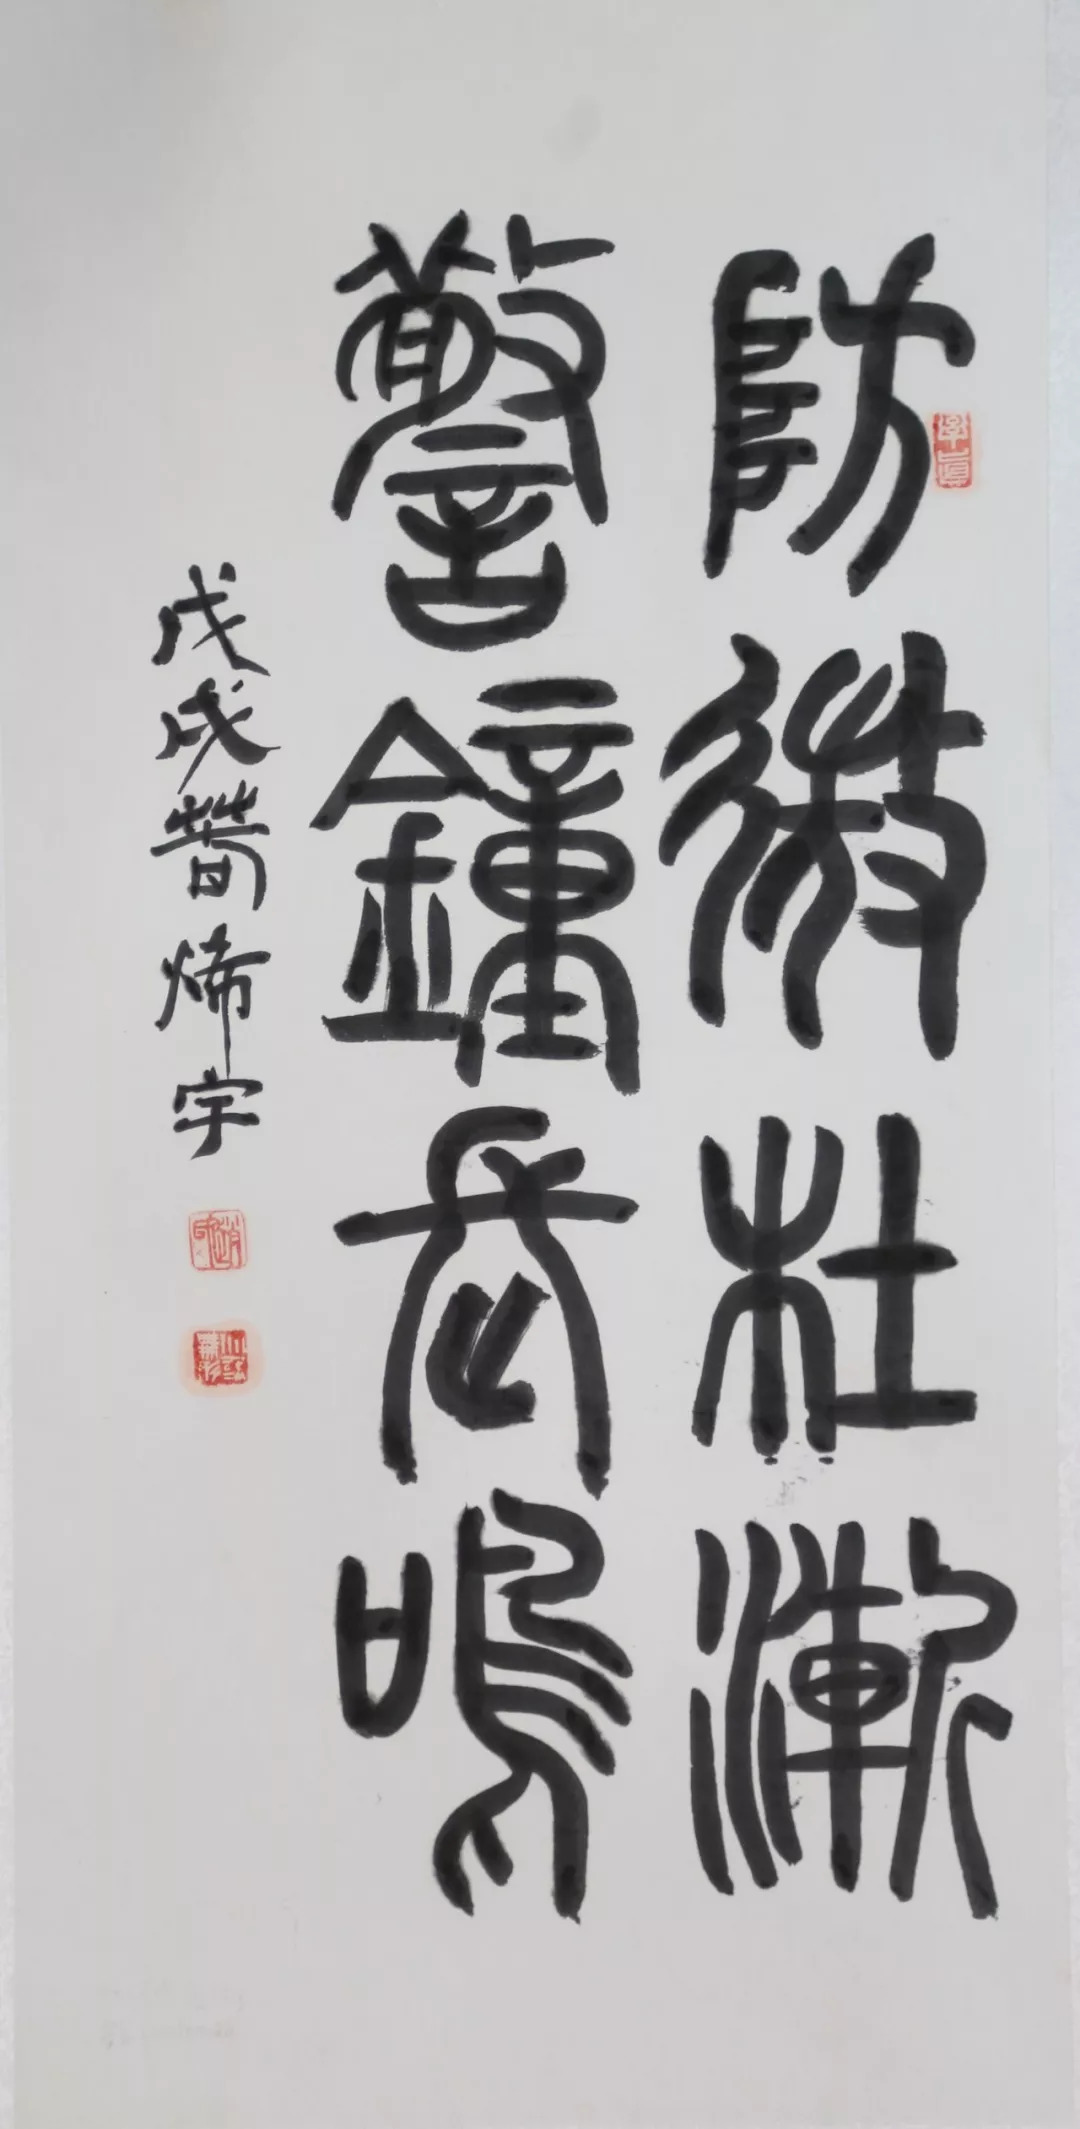 防微杜漸
警鐘長鳴
戊戌烯宇